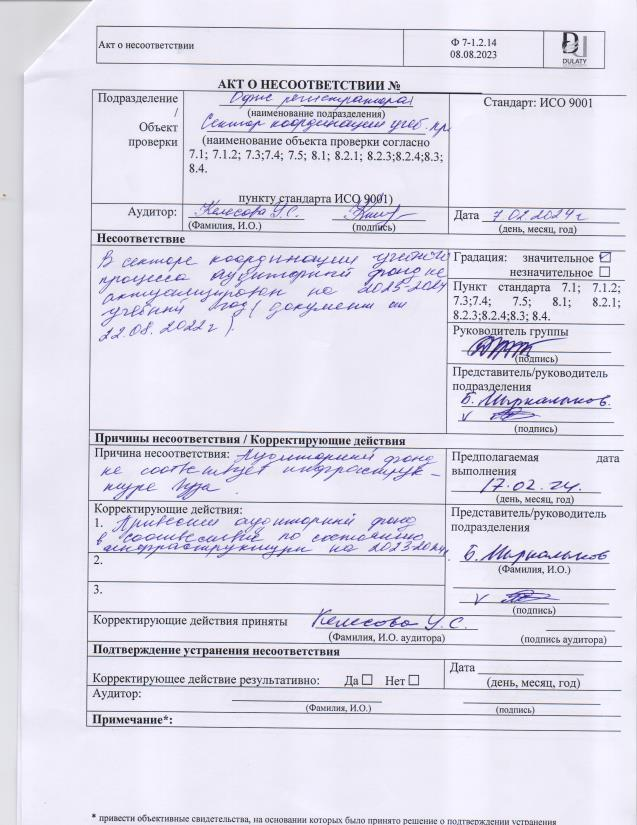 Акт о несоответствии
Ф 7-1.2.14
08.08.2023
DULATY
АКТ О НЕСООТВЕТСТВИИ №
Подразделение
/
Объект
проверки
Офис регистратора
(наименование подразделения)
Сектор координации учеб. пр
(наименование объекта проверки согласно
7.1; 7.1.2; 7.3;7.4; 7.5; 8.1; 8.2.1; 8.2.3;8.2.4;8.3;
8.4.
пункту стандарта ИСО 9001)
Стандарт: ИСО 9001
Аудитор:
Келесова У.С.
(Фамилия, И.О.)
(подпись)
Дата 7 02 2024 г
(день, месяц, год)
Несоответствие
В секторе координации учебного
процесса аудиторный фонд не
актуализирован на 2023-2024
учебный год (документ от
22.08.2022 г).
Градация: значительное
незначительное
Пункт стандарта 7.1; 7.1.2;
7.3;7.4; 7.5; 8.1; 8.2.1;
8.2.3;8.2.4;8.3; 8.4.
Руководитель группы
(подпись)
Представитель/руководитель
подразделения
Б. Мыркалыков.
(подпись)
Причины несоответствия / Корректирующие действия
Причина несоответствия: Аудиторный фонд
не соответствует инфраструк-
туре вуза.
Предполагаемая дата
выполнения
17.02.24.
(день, месяц, год)
Корректирующие действия:
1. Привести аудиторный фонд
в соответствие по состоянию
инфраструктуры на 2023-2024г.
2.
3.
Представитель/руководитель
подразделения
Б. Мыркалыков
(Фамилия, И.О.)
(подпись)
Корректирующие действия приняты Келесова У.С.
(Фамилия, И.О. аудитора)
(подпись аудитора)
Подтверждение устранения несоответствия
Корректирующее действие результативно: Да Нет
Дата
(день, месяц, год)
Аудитор:
(Фамилия, И.О.)
(подпись)
Примечание*:
* привести объективные свидетельства, на основании которых было принято решение о подтверждении устранения